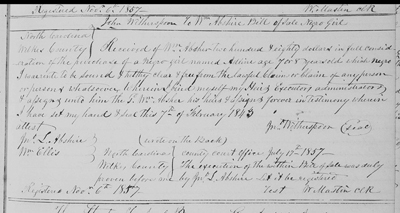 Registered Novr 6th 1857 W Mastin CCK
John Witherspoon To Wm Absher Bill of Sale Negro Girl
North Carolina
Wilkes County Received of Wm Absher two hundred & eighty dollars in full consid
eration of the purchase of a negro girl named aged 7 or 8 years old which negro
I warrant to be sound & healthy clear & free from the lawful claim or claims of any person
or persons whatsoever wherein I bind myself my Heirs Executors administrators
& assigns unto him the Sd Wm Absher his heirs & assigns forever in testimony whereof
I have set my hand & seal this 7th of February 1843
attest Jno. Witherspoon (Seal)
Jno. L Absher (made on the Back)
Wm Ellis North Carolina County court office July 1857
Wilkes County The execution of the within Bill of Sale was duly
proven before me by Jno. L Absher Let it be registered
Registered Novr 6th 1857 Test W Mastin CCK